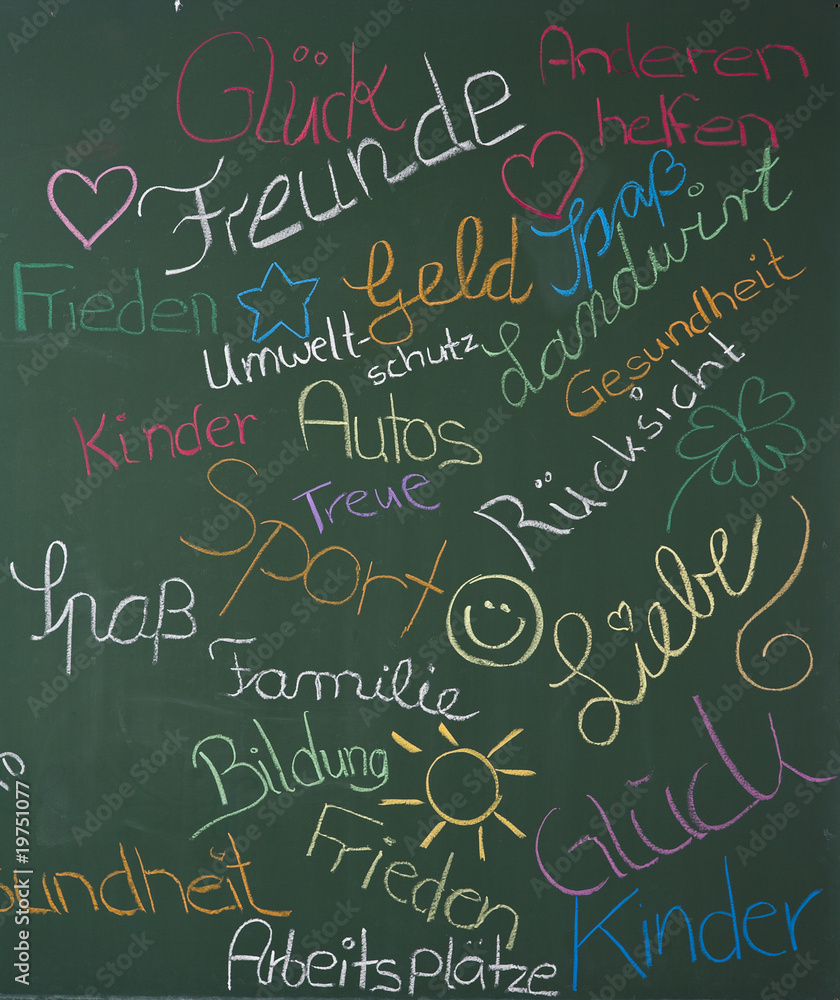 Glück
Anderen
helfen
Freunde
Spaß
Landwirt
Geld
Frieden
Gesundheit
Umwelt-
schutz
Rücksicht
Kinder
Autos
Treue
Sport
Spaß
Liebe
Familie
Bildung
Glück
Frieden
undheit
Kinder
Arbeitsplätze
Adobe Stock | #19751077